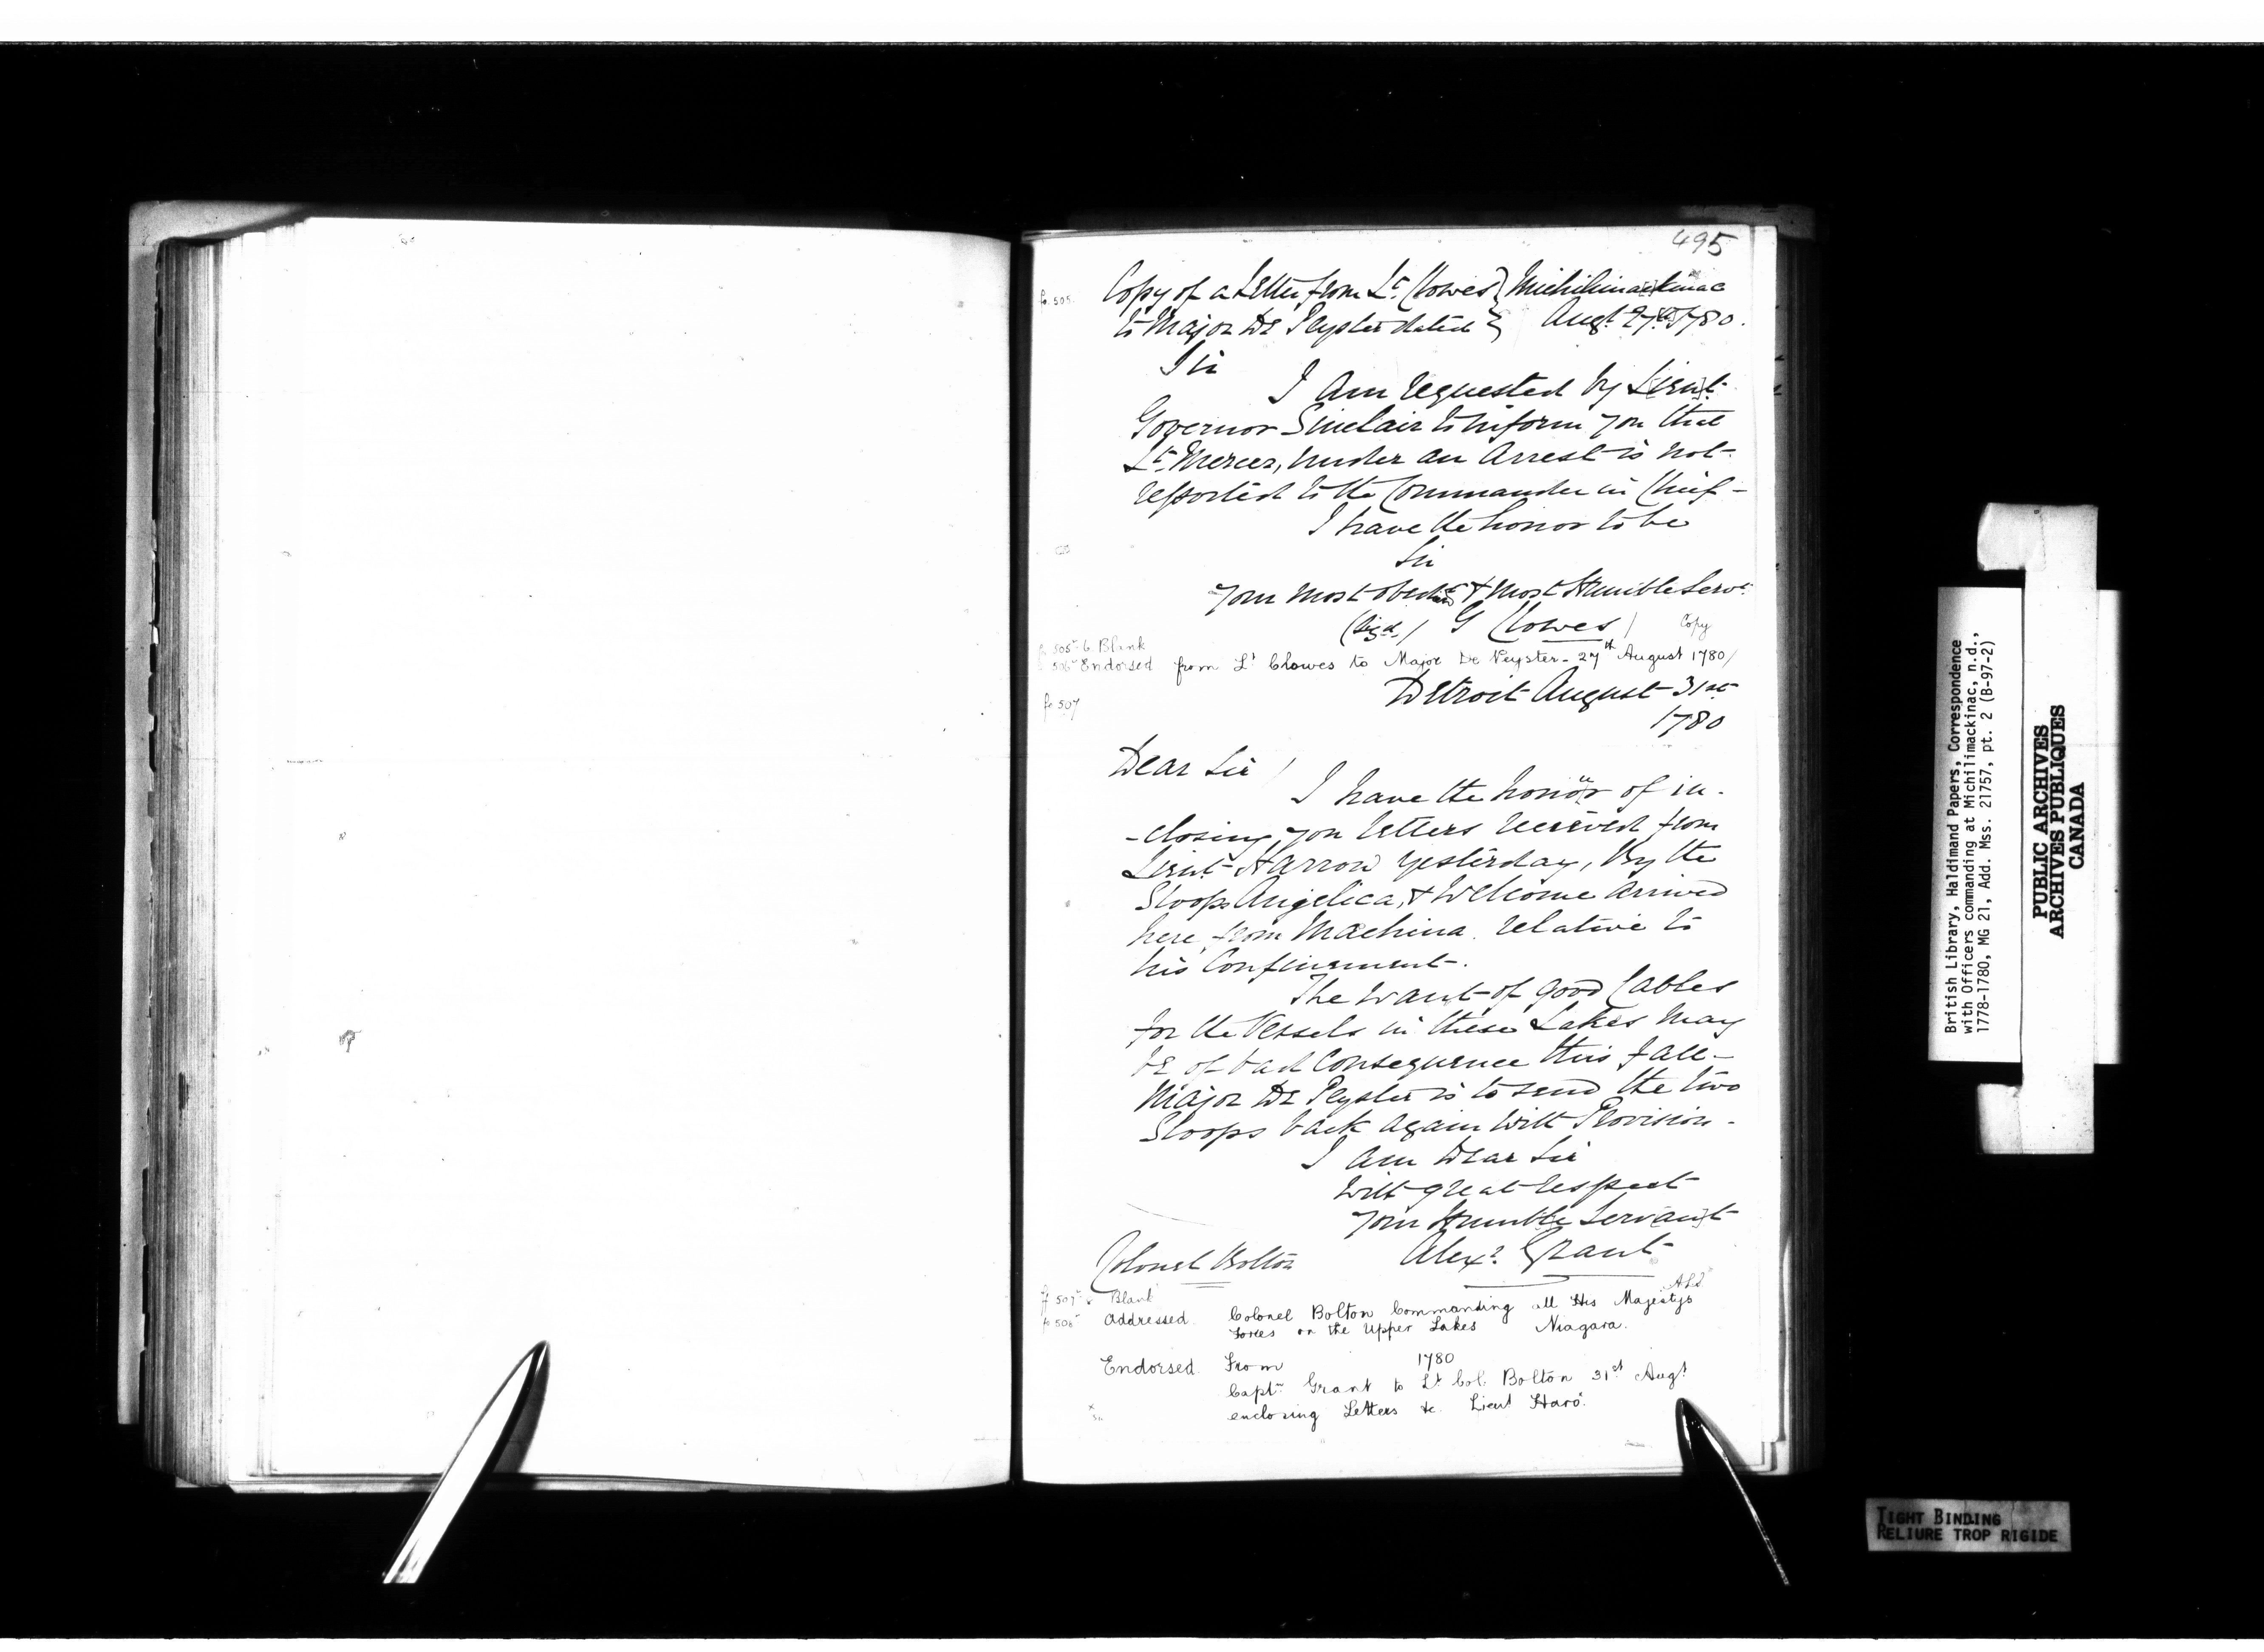 495
fo. 505. Copy of a Letter from Lt. Clowes } Michilimackinac
to Major De Peyster dated } Augt. 27th 1780.
Sir
I Am requested by Lieut.
Governor Sinclair to inform you that
Lt. Mercer, under an Arrest is not
reported to the Commander in Chief -
I have the honor to be
Sir
Your most obedt. & most Humble Servt.
(Sigd.) G Clowes / Copy
505 b Blank
506 Endorsed from Lt. Clowes to Major De Peyster - 27th August 1780/
fo 507 Detroit August 31st
1780
Dear Sir /
I have the honour of in-
-closing you letters received from
Lieut. Harrow yesterday, By the
Sloops Angelica, & Welcome arrived
here from Machina relative to
his Confinement.
The want of good Cables
for the Vessels in these Lakes may
be of bad Consequence this fall -
Major De Peyster is to send the two
Sloops back again with Provision -
I am Dear Sir
with great respect
Your Humble Servant
Colonel Bolton Alexr. Grant
A.L.S
f 507 b Blank
fo 508 Addressed Colonel Bolton Commanding all His Majestys
forces on the Upper Lakes Niagara.
Endorsed. From 1780
Captn. Grant to Lt. Col. Bolton 31st Augt.
enclosing Letters &c. Lieut Haro.
British Library, Haldimand Papers, Correspondence
with Officers commanding at Michilimackinac, n.d.,
1778-1780, MG 21, Add. Mss. 21757, pt. 2 (B-97-2)
PUBLIC ARCHIVES
ARCHIVES PUBLIQUES
CANADA
TIGHT BINDING
RELIURE TROP RIGIDE